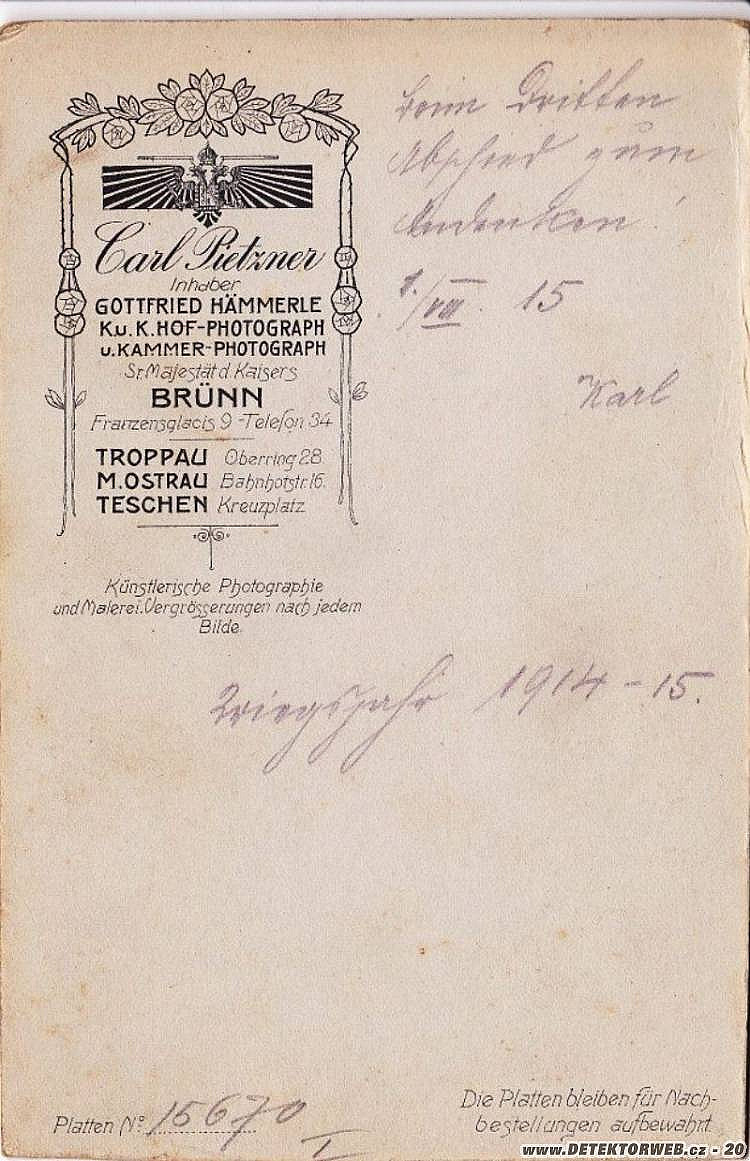 Carl Pietzner
Inhaber
GOTTFRIED HÄMMERLE
K.u.K.HOF-PHOTOGRAPH
u.KAMMER-PHOTOGRAPH
Sr.Majestät d Kaisers
BRÜNN
Franzensglacis 9-Telefon 34
TROPPAU Oberring 28
M.OSTRAU Bahnhofstr.16.
TESCHEN Kreuzplatz
Künstlerische Photographie
und Malerei.Vergrösserungen nach jedem
Bilde.
beim Dritten
Abschied zum
Andenken!
1./VIII. 15
Karl
Kriegsjahr 1914-15.
Platten Nº 15670
I
Die Platten bleiben für Nach-
bestellungen aufbewahrt
www.DETEKTORWEB.cz - 20